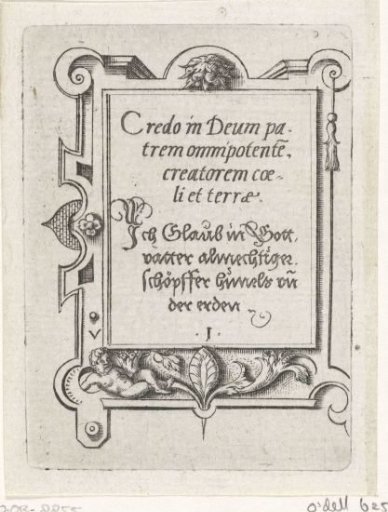 Credo in Deum pa-
trem omnipotentē,
creatorem cœ-
li et terræ.
Ich Glaub in Gott,
vatter almechtiger
schöpffer himels vn̄
der erden
· I ·
o'dell 625